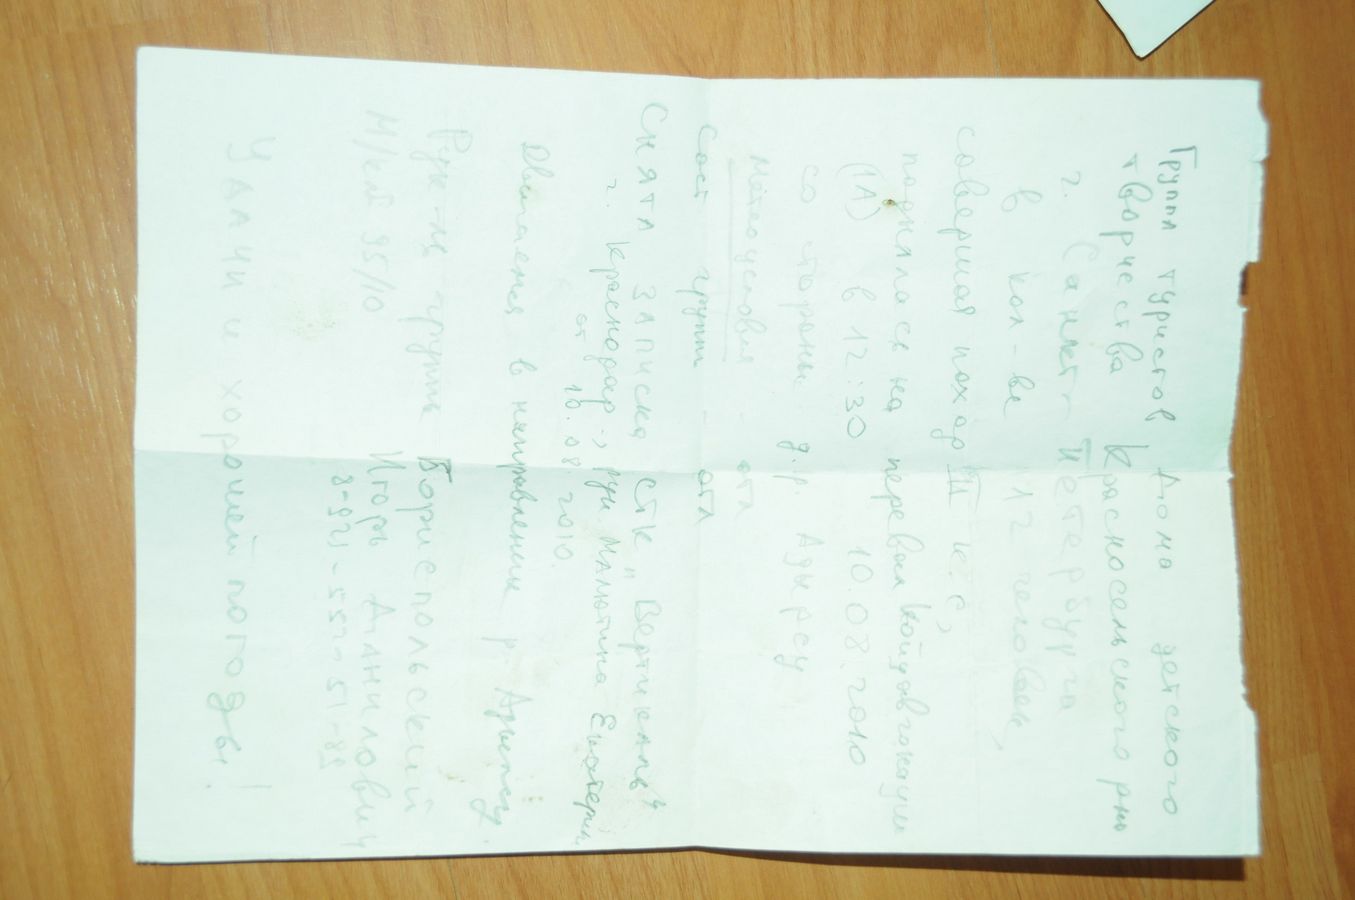 Группа туристов Дома детского
творчества Красносельского р-на
г. Санкт-Петербурга
в кол-ве 12 человек,
совершая поход III к.с,
поднялась на перевал Койавганауш
(1А) в 12:30 10.08.2010
со стороны д.р. Адырсу
Метеоусловия отл
Сост группы отл
Снята записка СТК "Вертикаль"
г. Краснодар, рук Малютина Екатерин
от 10.08 2010.
Двигаемся в направлении р. Адырсу.
Рук-ль группы Бориспольский
Игорь Даниилович
М/кн 95/10 8-921-552-51-82
УДАЧИ и хорошей погоды!